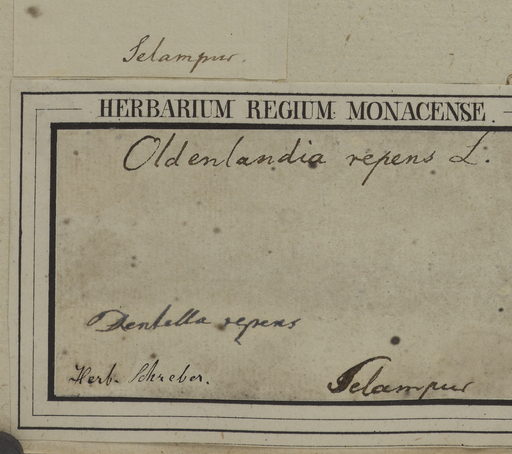 Selampur.
HERBARIUM REGIUM MONACENSE.
Oldenlandia repens L.
Dentella repens
Herb. Schreber.
Selampur